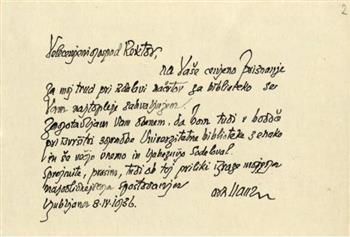 2
Velecenjeni gospod Rektor,
na Vaše cenjeno priznanje
za moj trud pri izdelavi načrtov za biblioteko se
Vam najtopleje zahvaljujem.
Zagotavljam Vam obenem, da bom tudi v bodoče
pri izvršitvi zgradbe Univerzitetne biblioteke z enako
in še večjo vnemo in ljubeznijo sodeloval.
Sprejmite, prosim, tudi ob tej priliki izraze mojega
najodličnejšega spoštovanja
Ljubljana 8. IV 1936.